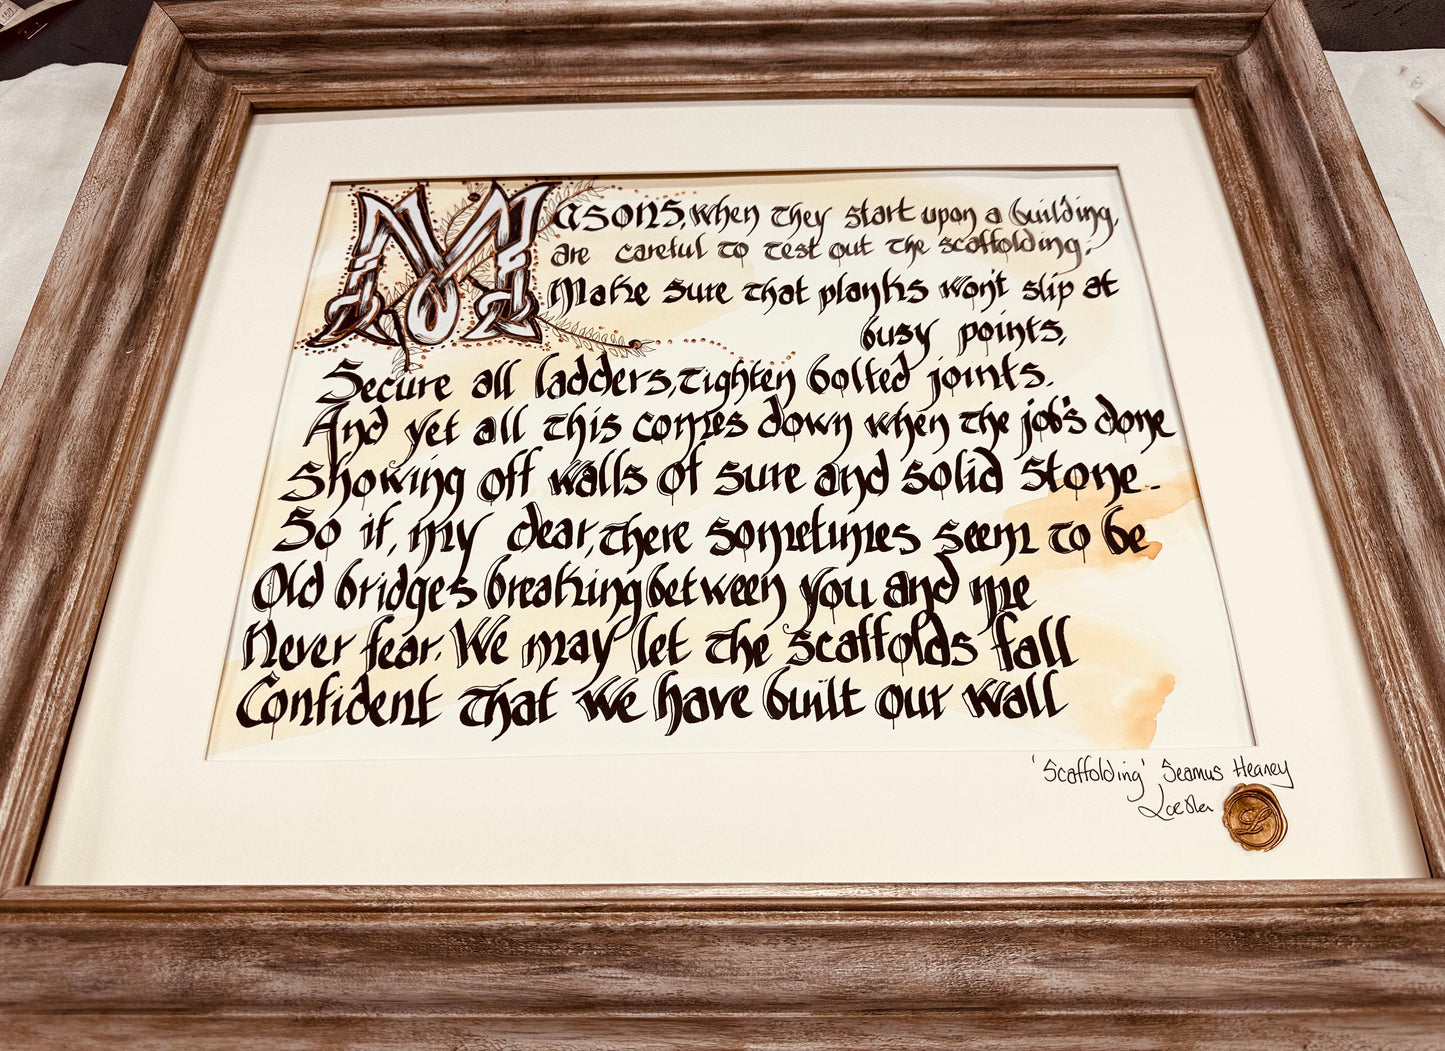 Masons, when they start upon a building,
are careful to test out the scaffolding;
Make sure that planks won't slip at
busy points,
Secure all ladders, tighten bolted joints.
And yet all this comes down when the job's done
Showing off walls of sure and solid stone.
So if, my dear, there sometimes seem to be
Old bridges breaking between you and me
Never fear. We may let the scaffolds fall
Confident that we have built our wall
'Scaffolding' Seamus Heaney